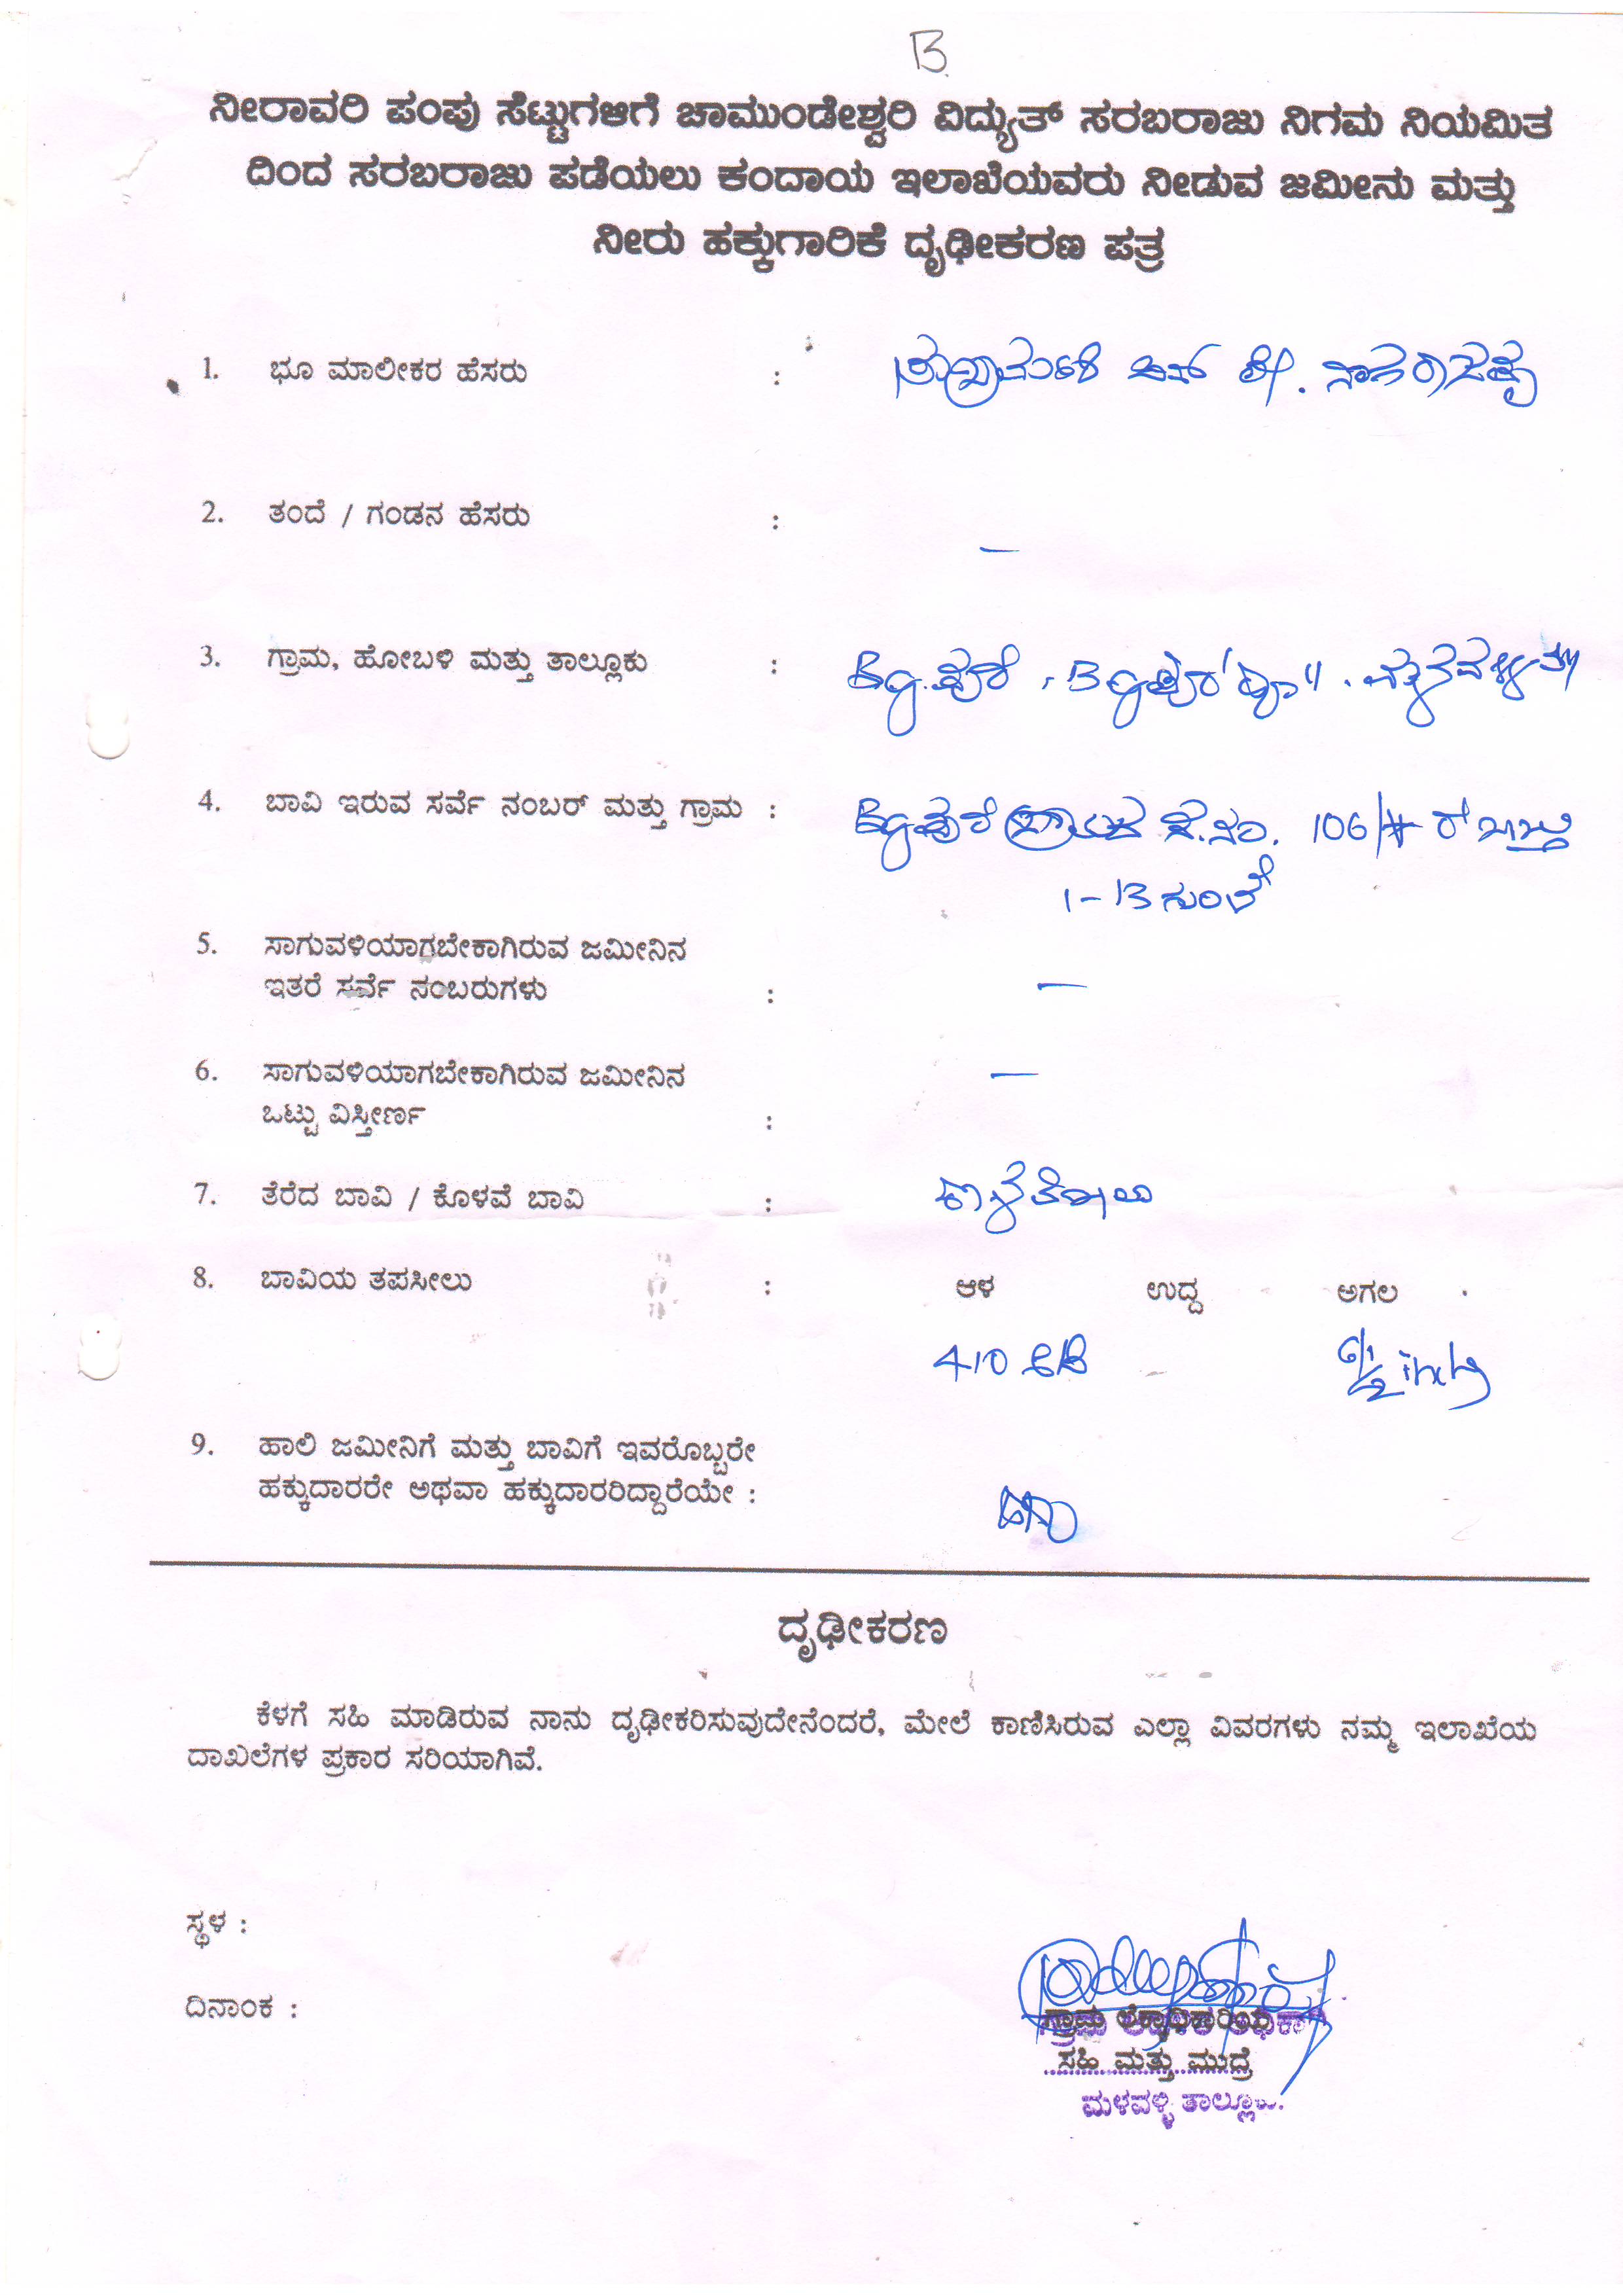 B
ನೀರಾವರಿ ಪಂಪು ಸೆಟ್ಟುಗಳಿಗೆ ಚಾಮುಂಡೇಶ್ವರಿ ವಿದ್ಯುತ್ ಸರಬರಾಜು ನಿಗಮ ನಿಯಮಿತ
ದಿಂದ ಸರಬರಾಜು ಪಡೆಯಲು ಕಂದಾಯ ಇಲಾಖೆಯವರು ನೀಡುವ ಜಮೀನು ಮತ್ತು
ನೀರು ಹಕ್ಕುಗಾರಿಕೆ ದೃಢೀಕರಣ ಪತ್ರ
1. ಭೂ ಮಾಲೀಕರ ಹೆಸರು :
2. ತಂದೆ / ಗಂಡನ ಹೆಸರು : —
3. ಗ್ರಾಮ, ಹೋಬಳಿ ಮತ್ತು ತಾಲ್ಲೂಕು : Bg.ಪುರ
4. ಬಾವಿ ಇರುವ ಸರ್ವೆ ನಂಬರ್ ಮತ್ತು ಗ್ರಾಮ : Bg.ಪುರ ಗ್ರಾಮದ ಸ.ನಂ. 106/
1-13 ಗುಂಟೆ
5. ಸಾಗುವಳಿಯಾಗಬೇಕಾಗಿರುವ ಜಮೀನಿನ
ಇತರೆ ಸರ್ವೆ ನಂಬರುಗಳು : —
6. ಸಾಗುವಳಿಯಾಗಬೇಕಾಗಿರುವ ಜಮೀನಿನ —
ಒಟ್ಟು ವಿಸ್ತೀರ್ಣ :
7. ತೆರೆದ ಬಾವಿ / ಕೊಳವೆ ಬಾವಿ :
8. ಬಾವಿಯ ತಪಸೀಲು : ಆಳ ಉದ್ದ ಅಗಲ
410 ಅಡಿ 6 1/2 inch
9. ಹಾಲಿ ಜಮೀನಿಗೆ ಮತ್ತು ಬಾವಿಗೆ ಇವರೊಬ್ಬರೇ
ಹಕ್ಕುದಾರರೇ ಅಥವಾ ಹಕ್ಕುದಾರರಿದ್ದಾರೆಯೇ :
ದೃಢೀಕರಣ
ಕೆಳಗೆ ಸಹಿ ಮಾಡಿರುವ ನಾನು ದೃಢೀಕರಿಸುವುದೇನೆಂದರೆ, ಮೇಲೆ ಕಾಣಿಸಿರುವ ಎಲ್ಲಾ ವಿವರಗಳು ನಮ್ಮ ಇಲಾಖೆಯ
ದಾಖಲೆಗಳ ಪ್ರಕಾರ ಸರಿಯಾಗಿವೆ.
ಸ್ಥಳ :
ದಿನಾಂಕ :
ಗ್ರಾಮ
ಸಹಿ ಮತ್ತು ಮುದ್ರೆ
ಮಳವಳ್ಳಿ ತಾಲ್ಲೂಕು.